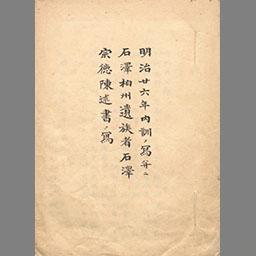 明治廿六年内訓ノ寫并ニ
石澤柏州遺族者石澤
宗德陳述書ノ寫